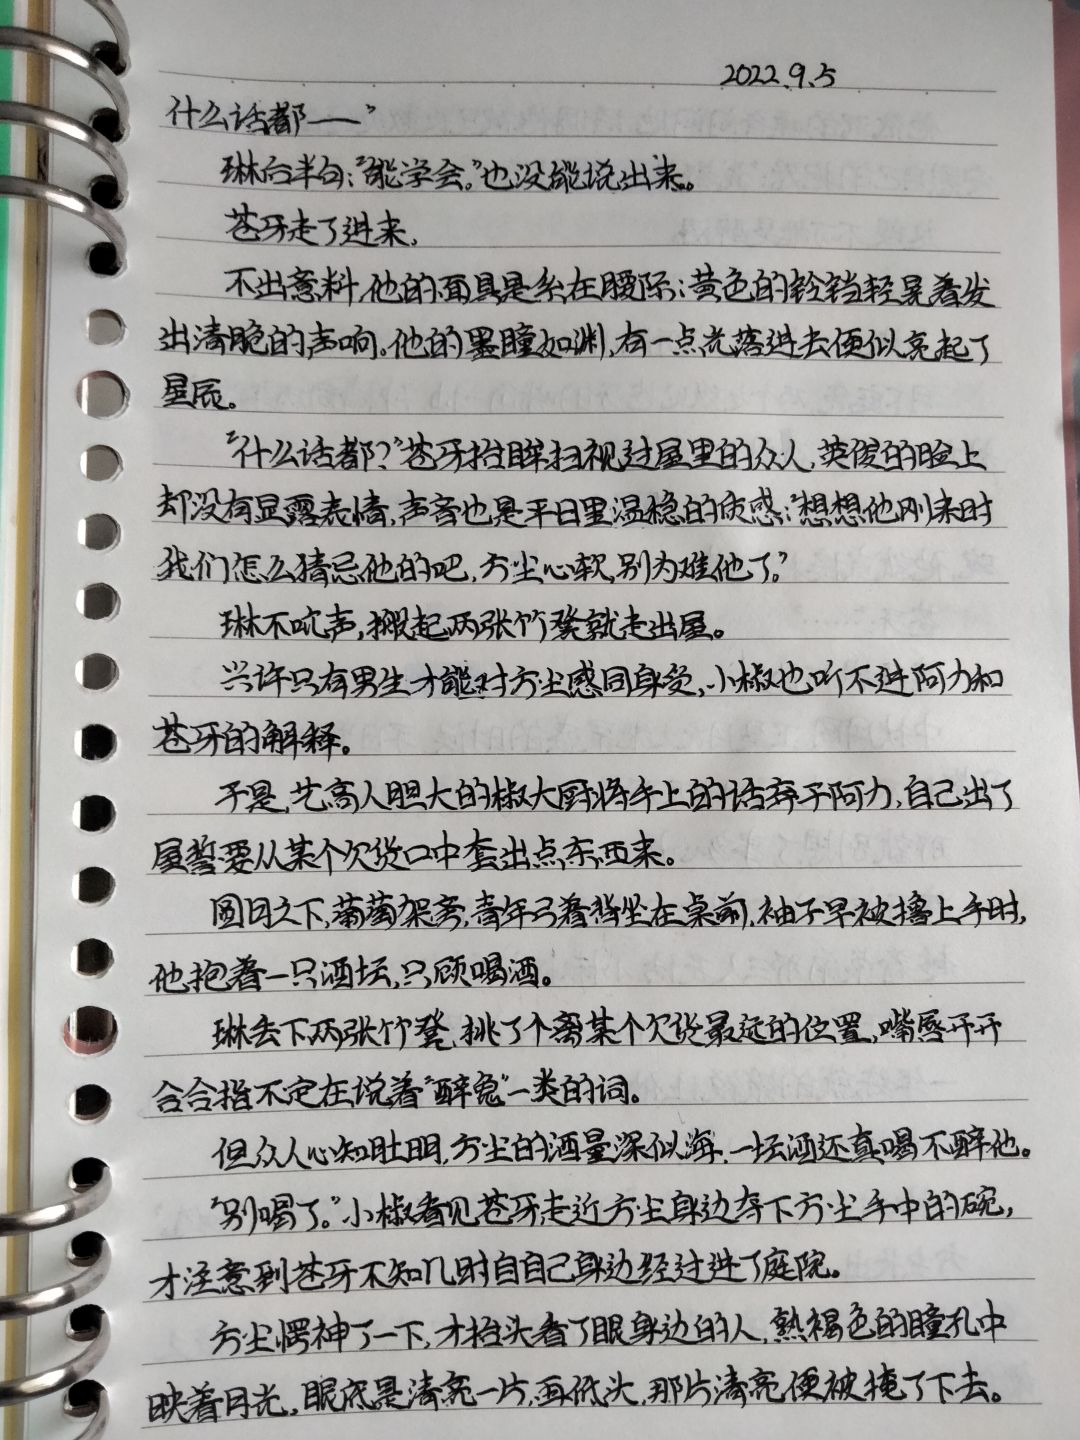 2022.9.5
什么话都——”
琳台半句：“能学会。”也没能说出来。
苍牙走了进来，
不出意料，他的面具是系在腰际；黄色的铃铛轻晃着发
出清脆的声响。他的墨瞳如渊，有一点光落进去便似亮起了
星辰。
“什么话都？”苍牙抬眸扫视过屋里的众人，英俊的脸上
却没有显露表情，声音也是平日里温稳的质感：“想想他刚来时
我们怎么猜忌他的吧，方尘心软，别为难他了。”
琳不吭声，搬起两张竹凳就走出屋。
兴许只有男生才能对方尘感同身受，小椒也听不进阿力和
苍牙的解释。
于是，艺高人胆大的椒大厨将手上的活弃于阿力，自己出了
屋誓要从某个欠货口中套出点东西来。
圆日之下，葡萄架旁，青年弓着背坐在桌前，袖子早被撸上手肘，
他抱着一只酒坛，只顾喝酒。
琳丢下两张竹凳，挑了个离某个欠货最远的位置，嘴唇开开
合合指不定在说着“醉鬼”一类的词。
但众人心知肚明，方尘的酒量深似海，一坛酒还真喝不醉他。
“别喝了。”小椒看见苍牙走近方尘身边夺下方尘手中的碗，
才注意到苍牙不知几时自自己身边经过进了庭院。
方尘愣神了一下，才抬头看了眼身边的人，熟褐色的瞳孔中
映着月光，眼底是清亮一片，再低头，那片清亮便被掩了下去。